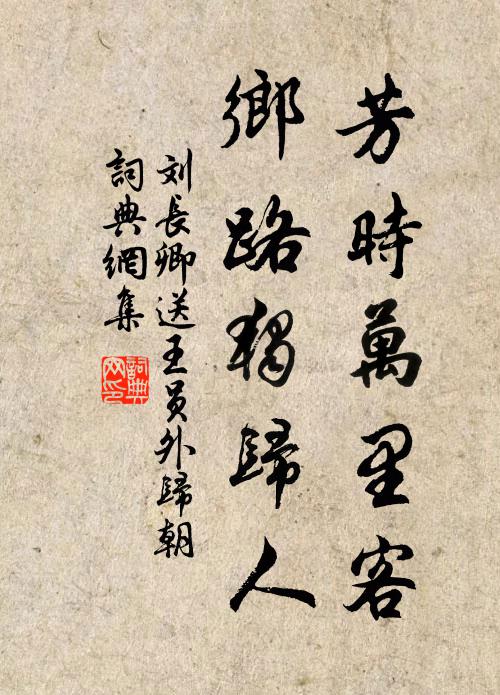 芳時萬里客
鄉路獨歸人
刘長卿送王员外歸朝
詞典網集
詞典网印